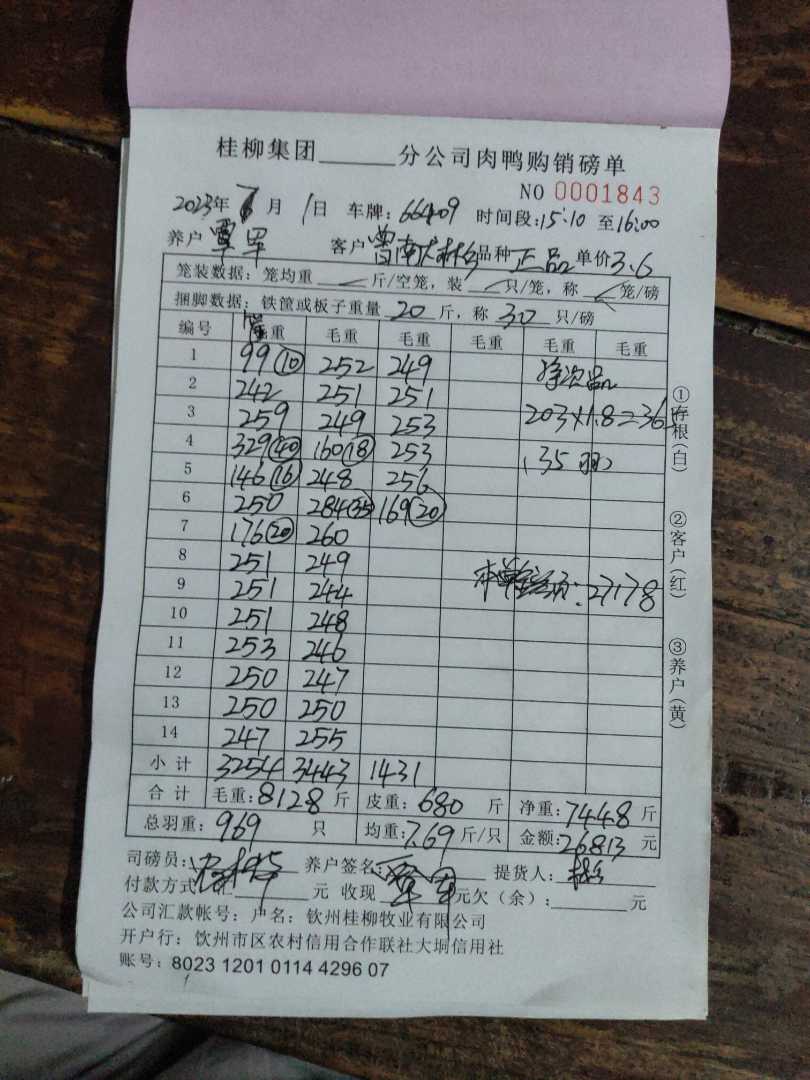 桂柳集团______分公司肉鸭购销磅单
NO 0001843
2023年 7月 1日 车牌: 66409 时间段: 15:10 至16:00
养户 覃军 客户 品种 正品 单价 3.6
笼装数据: 笼均重 斤/空笼, 装 只/笼, 称 笼/磅
捆脚数据: 铁筐或板子重量 20 斤, 称 30 只/磅
编号 毛重 毛重 毛重 毛重 毛重 毛重
1 99 (10) 252 249
2 242 251 251
3 259 249 253 203×1.8=365
4 329 (40) 160 (18) 253 35羽
5 146 (16) 248 256
6 250 284 (35) 169 (20)
7 176 (20) 260
8 251 249
9 251 244 27178
10 251 248
11 253 246
12 250 247
13 250 250
14 247 255
小计 3254 3443 1431
合计 毛重: 8128 斤 皮重: 680 斤 净重: 7448 斤
总羽重: 969 只 均重: 7.69 斤/只 金额: 26813 元
司磅员: 养户签名: 提货人:
付款方式 元 收现 元欠(余): 元
公司汇款帐号: 户名: 钦州桂柳牧业有限公司
开户行: 饮州市区农村信用合作联社大垌信用社
账号: 8023 1201 0114 4296 07
①存根(白)
②客户(红)
③养户(黄)